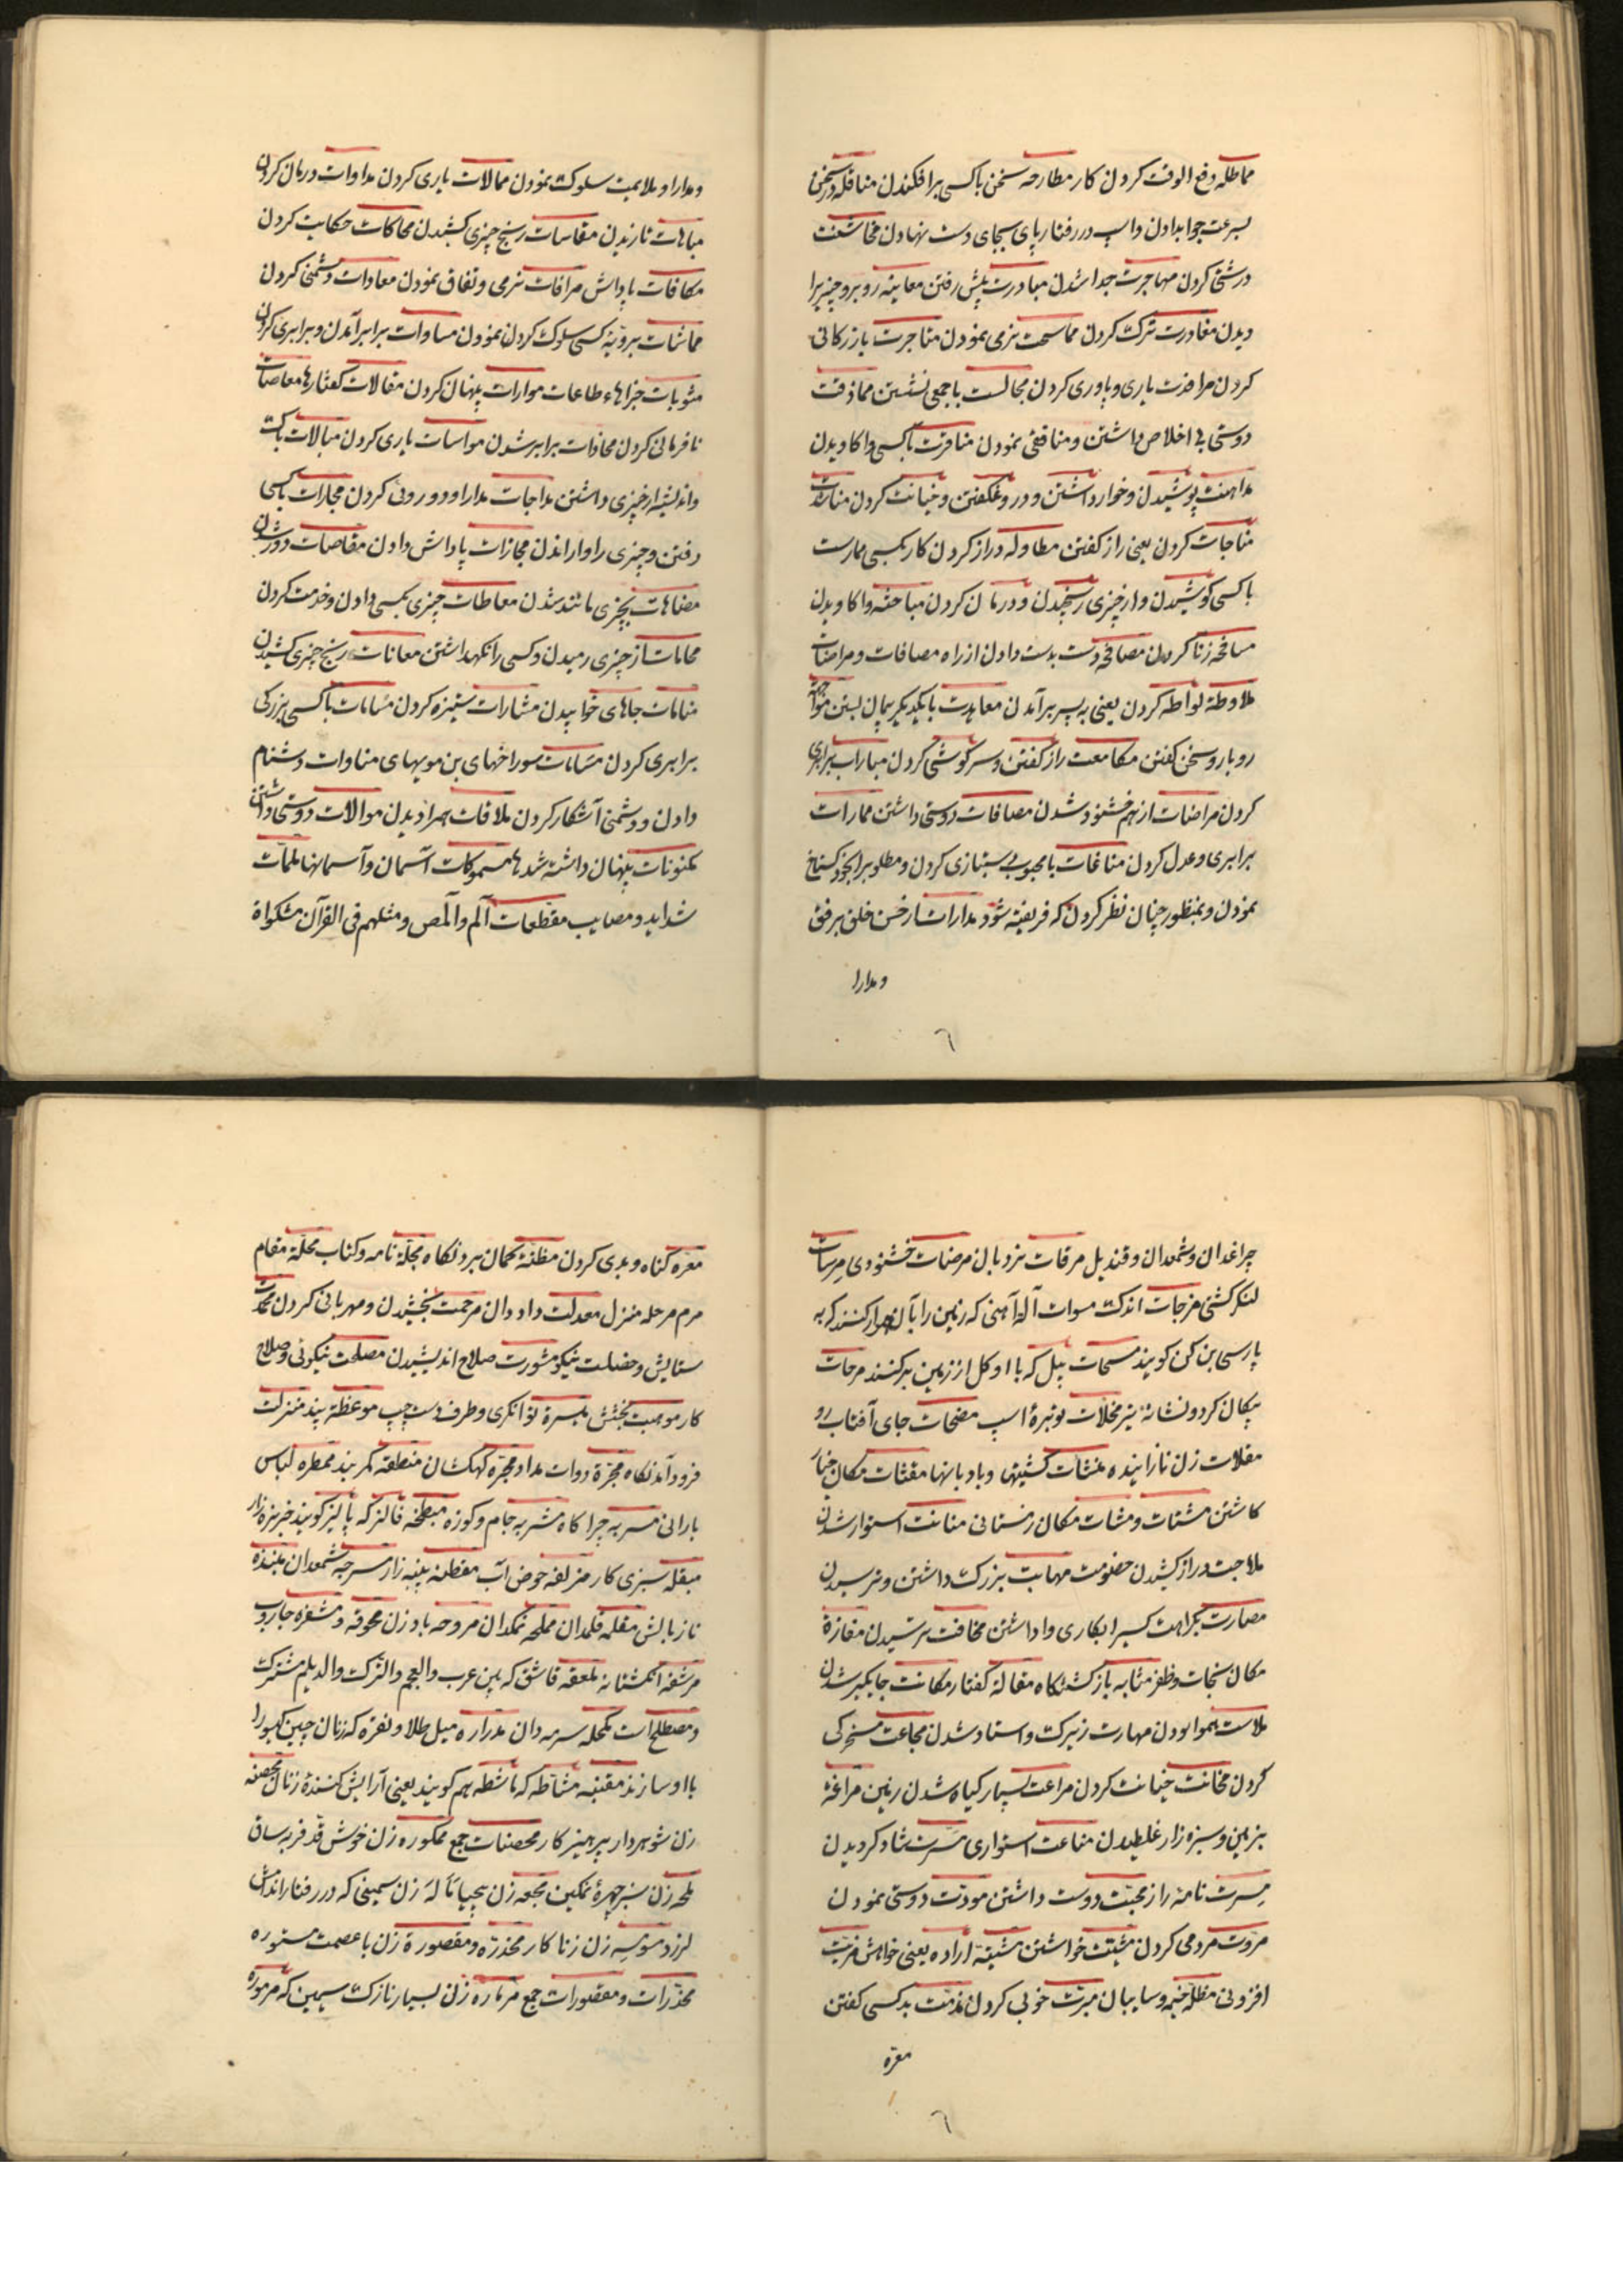 مماطله دفع الوقت کردن کار مطارحه سخن باکسی برافکندن مناقله در سخن
بسرعت جوابدادن واسپ در رفتار پای بجای دست نهادن مخاشنت
درشتی کردن مهاجرت جدا شدن مبادرت پیش رفتن معاینه روبرو چیزیرا
دیدن مغادرت ترک کردن مماسحت نرمی نمودن متاجرت بازرکانی
کردن مرافدت یاری ویاوری کردن مجالست باجمعی نشستن مماذقت
دوستی بی اخلاص داشتن ومنافقی نمودن منافرت باکسی واکاویدن
مداهنت پوشیدن وخوار داشتن ودروغ کفتن وخیانت کردن
مناجات کردن یعنی راز کفتن مطاوله دراز کردن کار بکسی ممارست
باکسی کوشیدن واز چیزی رنجیدن ودرمان کردن مباحثه واکاویدن
مسافحه زنا کردن مصافحه دست بدست دادن از راه مصافات ومراضات
ملاوطه لواطه کردن یعنی به پسر برآمدن معاهدت بایکدیکر پیمان بستن مواجهه
روبارو سخن کفتن مکامعت راز کفتن وسرکوشی کردن مبارات برابری
کردن مراضات از هم خشنود شدن مصافات دوستی داشتن ممارات
برابری وعدل کردن مناغات بامحبوب
نمودن وبمنظور چنان نظر کردن که فریفته شود مدارات از حسن خلق برفق
ومدارا
ومدارا وملایمت سلوک نمودن ممالات یاری کردن مداوات درمان کردن
مباهات نازیدن مقاسات رنج چیزی کشیدن محاکات حکایت کردن
مکافات پاداش مرافات نرمی ونفاق نمودن معادات دشمنی کردن
مماشات برویه کسی سلوک کردن نمودن مساوات برابر آمدن وبرابری کردن
مثوبات جزاهاء طاعات موارات پنهان کردن مقالات کفتارها معاصات
نافرمانی کردن محاذات برابر شدن مواسات یاری کردن مبالات باک
واندیشه از چیزی داشتن مداجات مدارا ودورویی کردن مجارات باکسی
رفتن وچیزی را وا راندن مجازات پاداش دادن مقاصات دور شدن
مضاهات بچیزی مانند شدن معاطات چیزی بکسی دادن وخدمت کردن
محامات از چیزی رمیدن وکسی را نکهداشتن معانات رنج چیزی کشیدن
منامات جاهای خوابیدن مشارات ستیزه کردن مسامات باکسی ببزرکی
برابری کردن مسامات سوراخهای بن مویهای مناوات دشنام
دادن ودشمنی آشکار کردن ملاقات همرا دیدن موالات دوستی داشتن
مکنونات پنهان داشته شدها مسموکات آسمان وآسمانها ملمات
شداید ومصایب مقطعات آلم والمص ومثلهم فی القرآن مشکواة
چراغدان وشمعدان وقندیل مرقات نردبان مرضات خشنودی مرسات
لنکر کشتی مزجات اندک مسوات آلة آهنی که زمین را بآن هموار کنند که به
پارسی بن کن کویند مسحات بیل که با او کل از زمین برکنند مرحات
پیکان کرد ونشانه تیر مخلات توبرهٔ اسپ مضحات جای آفتاب رو
مقلات زن نازاینده منشآت کشتیها وبادبانها مقثات مکان خیار
کاشتن مشتات ومشات مکان زمستانی متانت استوار شدن
ملاجت دراز کشیدن خصومت مهابت بزرک داشتن وترسیدن
مصارت بکراهت کسیرا بکاری واداشتن مخافت ترسیدن مفازة
مکان نجات وظفر مثابه بازکشتنکاه مقالة کفتار مکانت جایکیر شدن
ملاست هموار بودن مهارت زیرک واستاد شدن مجاعت مسخرکی
کردن مخانت خیانت کردن مراعت بسیار کیاه شدن زمین مراغه
بزمین وسبزه زار غلطیدن مناعت استواری مسرت شاد کردیدن
مسرت نامهٔ راز محبت دوست داشتن مودت دوستی نمودن
مروت مردمی کردن مشیت خواستن مشیئة اراده یعنی خواهش مزیت
افزونی مظله خیمه وسایبان مبرت خوبی کردن مذمت بدکسی کفتن
معره
معره کناه وبدی کردن مظنه کمان بردنکاه مجله نامه وکتاب محلة مقام
مرم مرحله منزل معدلت داد دان مرحمت بخشیدن ومهربانی کردن محمدت
ستایش وخصلت نیکو مشورت صلاح اندیشیدن مصلحت نیکوئی وصلاح
کار موهبت بخشش میسرة توانکری وطرف دست چپ موعظة پند منزلت
فرود آمدنکاه محبرة دوات مداد مجره کهکشان منطقه کمربند ممطره لباس
بارانی مسربه چراکاه مشربه جام وکوزه مبطخه فالز که پالیز کویند خربزه زار
مبقله سبزی کار مزلفه حوض آب مقطنه پنبه زار مسرجه شمعدان
نازبالش مقلمه قلمدان مملحه نمکدان مروحه بادزن محوقه ومشعره جاروب
مرشفه انکشتانه ملعقه قاشق که بین عرب والعجم والترک والدیلم مشترک
ومصطلح است مکحله سرمه دان مدراره میل طلا ونقره که زنان جبین کیسورا
با او سازند مقنیه مشاطه که ماشطه هم کویند یعنی آرایش کنندهٔ زنان محصنه
زن شوهردار پرهیزکار محصنات جمع ممکوره زن خوش قد فربه ساق
ملحه زن سبز چهرهٔ نمکین مجعه زن بیحیا مآله زن سمینی که در رفتار اندامش
لرزد مومسه زن زناکار مخدره ومقصورة زن باعصمت مستوره
مخدرات ومقصورات جمع مرماره زن بسیار نازک سیمین که مرموره